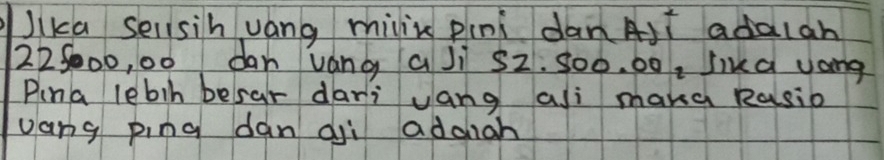 Jika selisih uang milik pini dan Aji adalah
225000,00 dan uang aji 52.500.00, jika uang
Pina lebih besar dari uang aji maka Rasio
uang pina dan aji adalah